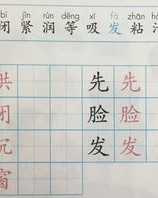 bì jǐn rùn děng xī fà zhān
闭 紧 润 等 吸 发 粘
先 先
闭 脸 脸
沉 发 发
窗